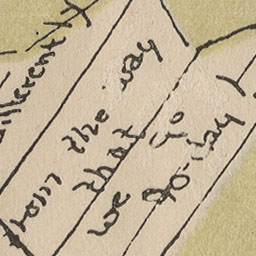 differently
from the way
that
we do
today